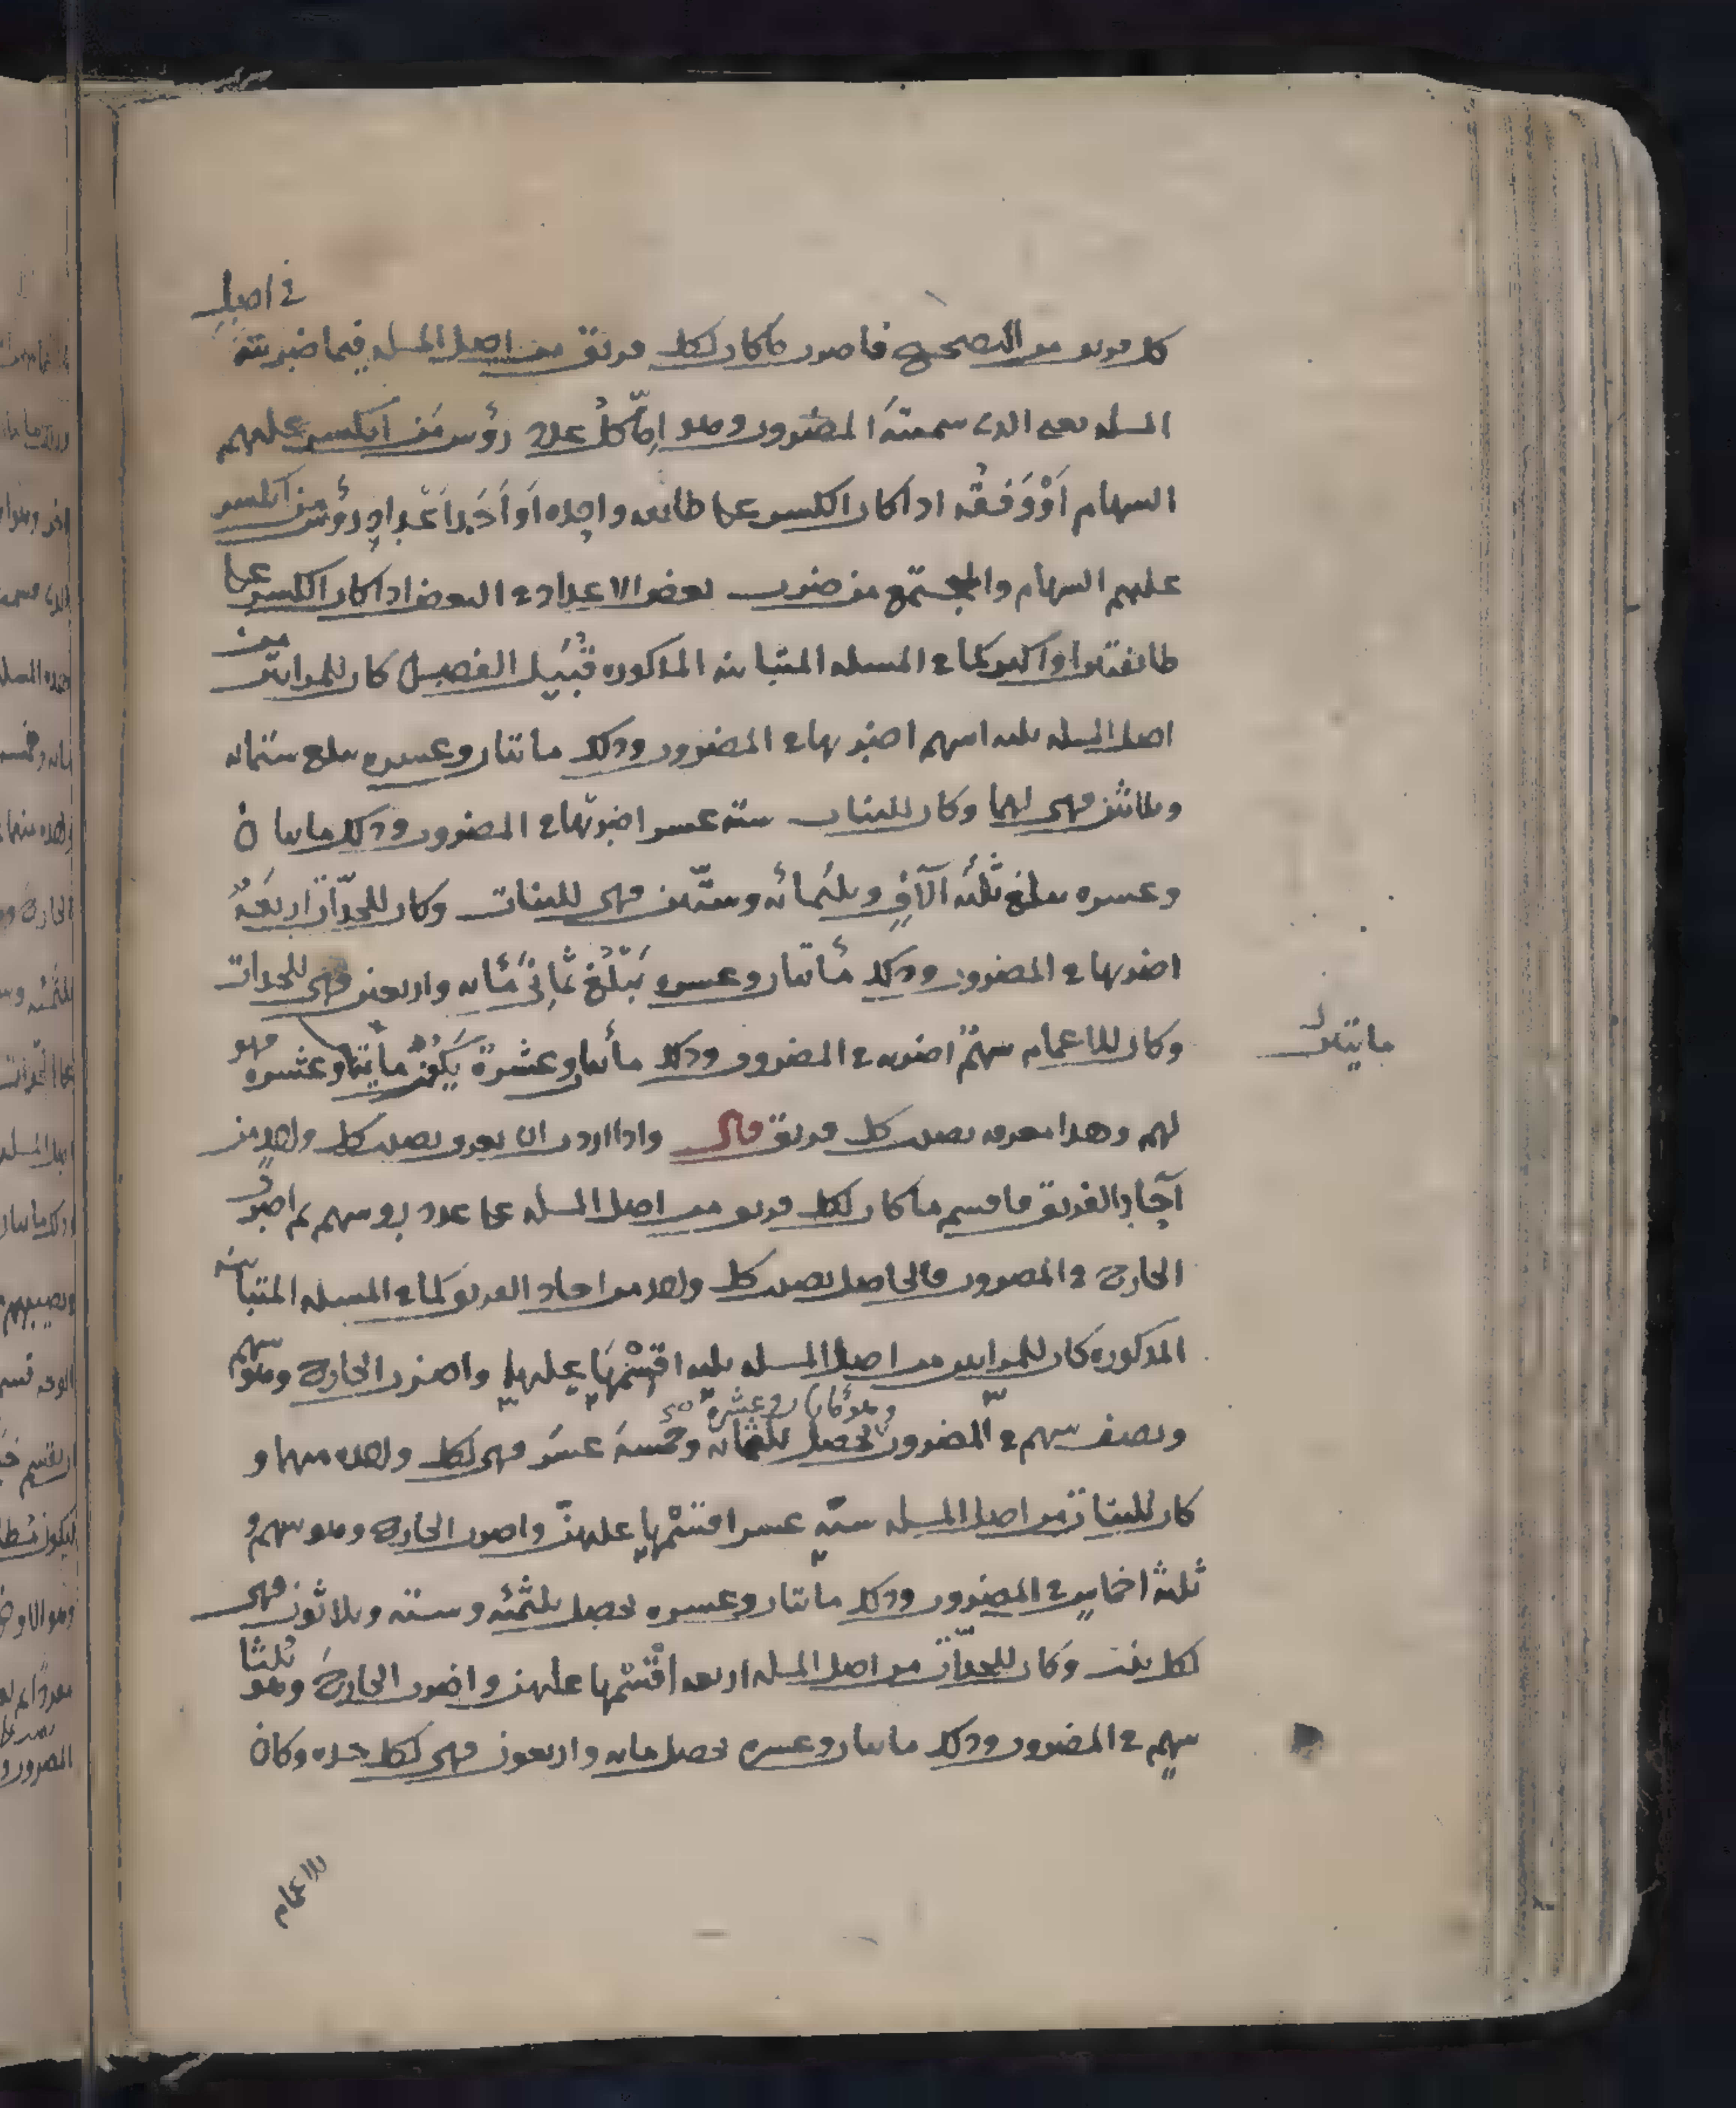 كل فريق من التصحيح فاضرب ما كان لكل فريق من اصل المسله فيما ضربته في اصل
المسله يعني الذي سميته المضروب وهو اما كل عدد رؤس من انكسر عليهم
السهام او وفقه اذا كان الكسر على طائفه واحده او احد اعداد رؤس من انكسر
عليهم السهام والمجتمع من ضرب بعض الاعداد في البعض اذا كان الكسر على
طائفتين او اكثر كما في المسله المتباينه المذكوره قبيل الفصل كان للمراتين من
اصل المسله ثلثه اسهم اضربها في المضروب وذلك مائتان وعشره يبلغ ستمائه
وثلاثين فهي لهما وكان للبنات سته عشر اضربها في المضروب وذلك مائتان
وعشره يبلغ ثلثه آلاف وثلثمائه وستين فهي للبنات وكان للجدات اربعة
اضربها في المضروب وذلك مأتان وعشره يبلغ ثماني مأئه واربعين فهي للجدات
وكان للاعمام سهم اضربه في المضروب وذلك مأتان وعشرة يكون مايتا وعشره فهو
مايتين
لهم وهذا معرفه نصيب كل فريق قال واذا اردت ان تعرف نصيب كل واحد من
آحاد الفريق فاقسم ما كان لكل فريق من اصل المسله على عدد رؤسهم ثم اضرب
الخارج في المضروب فالحاصل نصيب كل واحد من احاد الفريق كما في المسله المتباينه
المذكوره كان للمراتين من اصل المسله ثلثه اقسمها عليهما واضرب الخارج وهو سهم
وهو مأتان وعشرة
ونصف سهم في المضروب يحصل ثلثمائه وخمسة عشر فهي لكل واحده منهما و
كان للبنات من اصل المسله سته عشر اقسمها عليهن واضرب الخارج وهو سهم و
ثلثة اخماس في المضروب وذلك مائتان وعشره يحصل ثلثمئه وسته وثلاثون فهي
لكل بنت وكان للجدات من اصل المسله اربعه اقسمها عليهن واضرب الخارج وهو ثلثا
سهم في المضروب وذلك مائتان وعشره يحصل مائه واربعون فهي لكل جده وكان
للاعمام